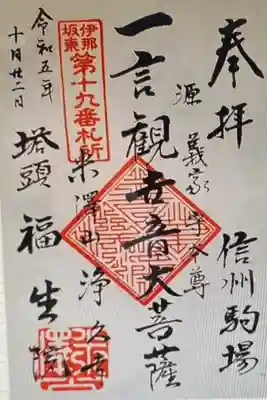 奉拝
信州駒場
源義家守本尊
一言観世音大菩薩
伊那
坂東
第十九番札所
米澤山浄久寺
塔頭福生院
令和五年
十月廿二日